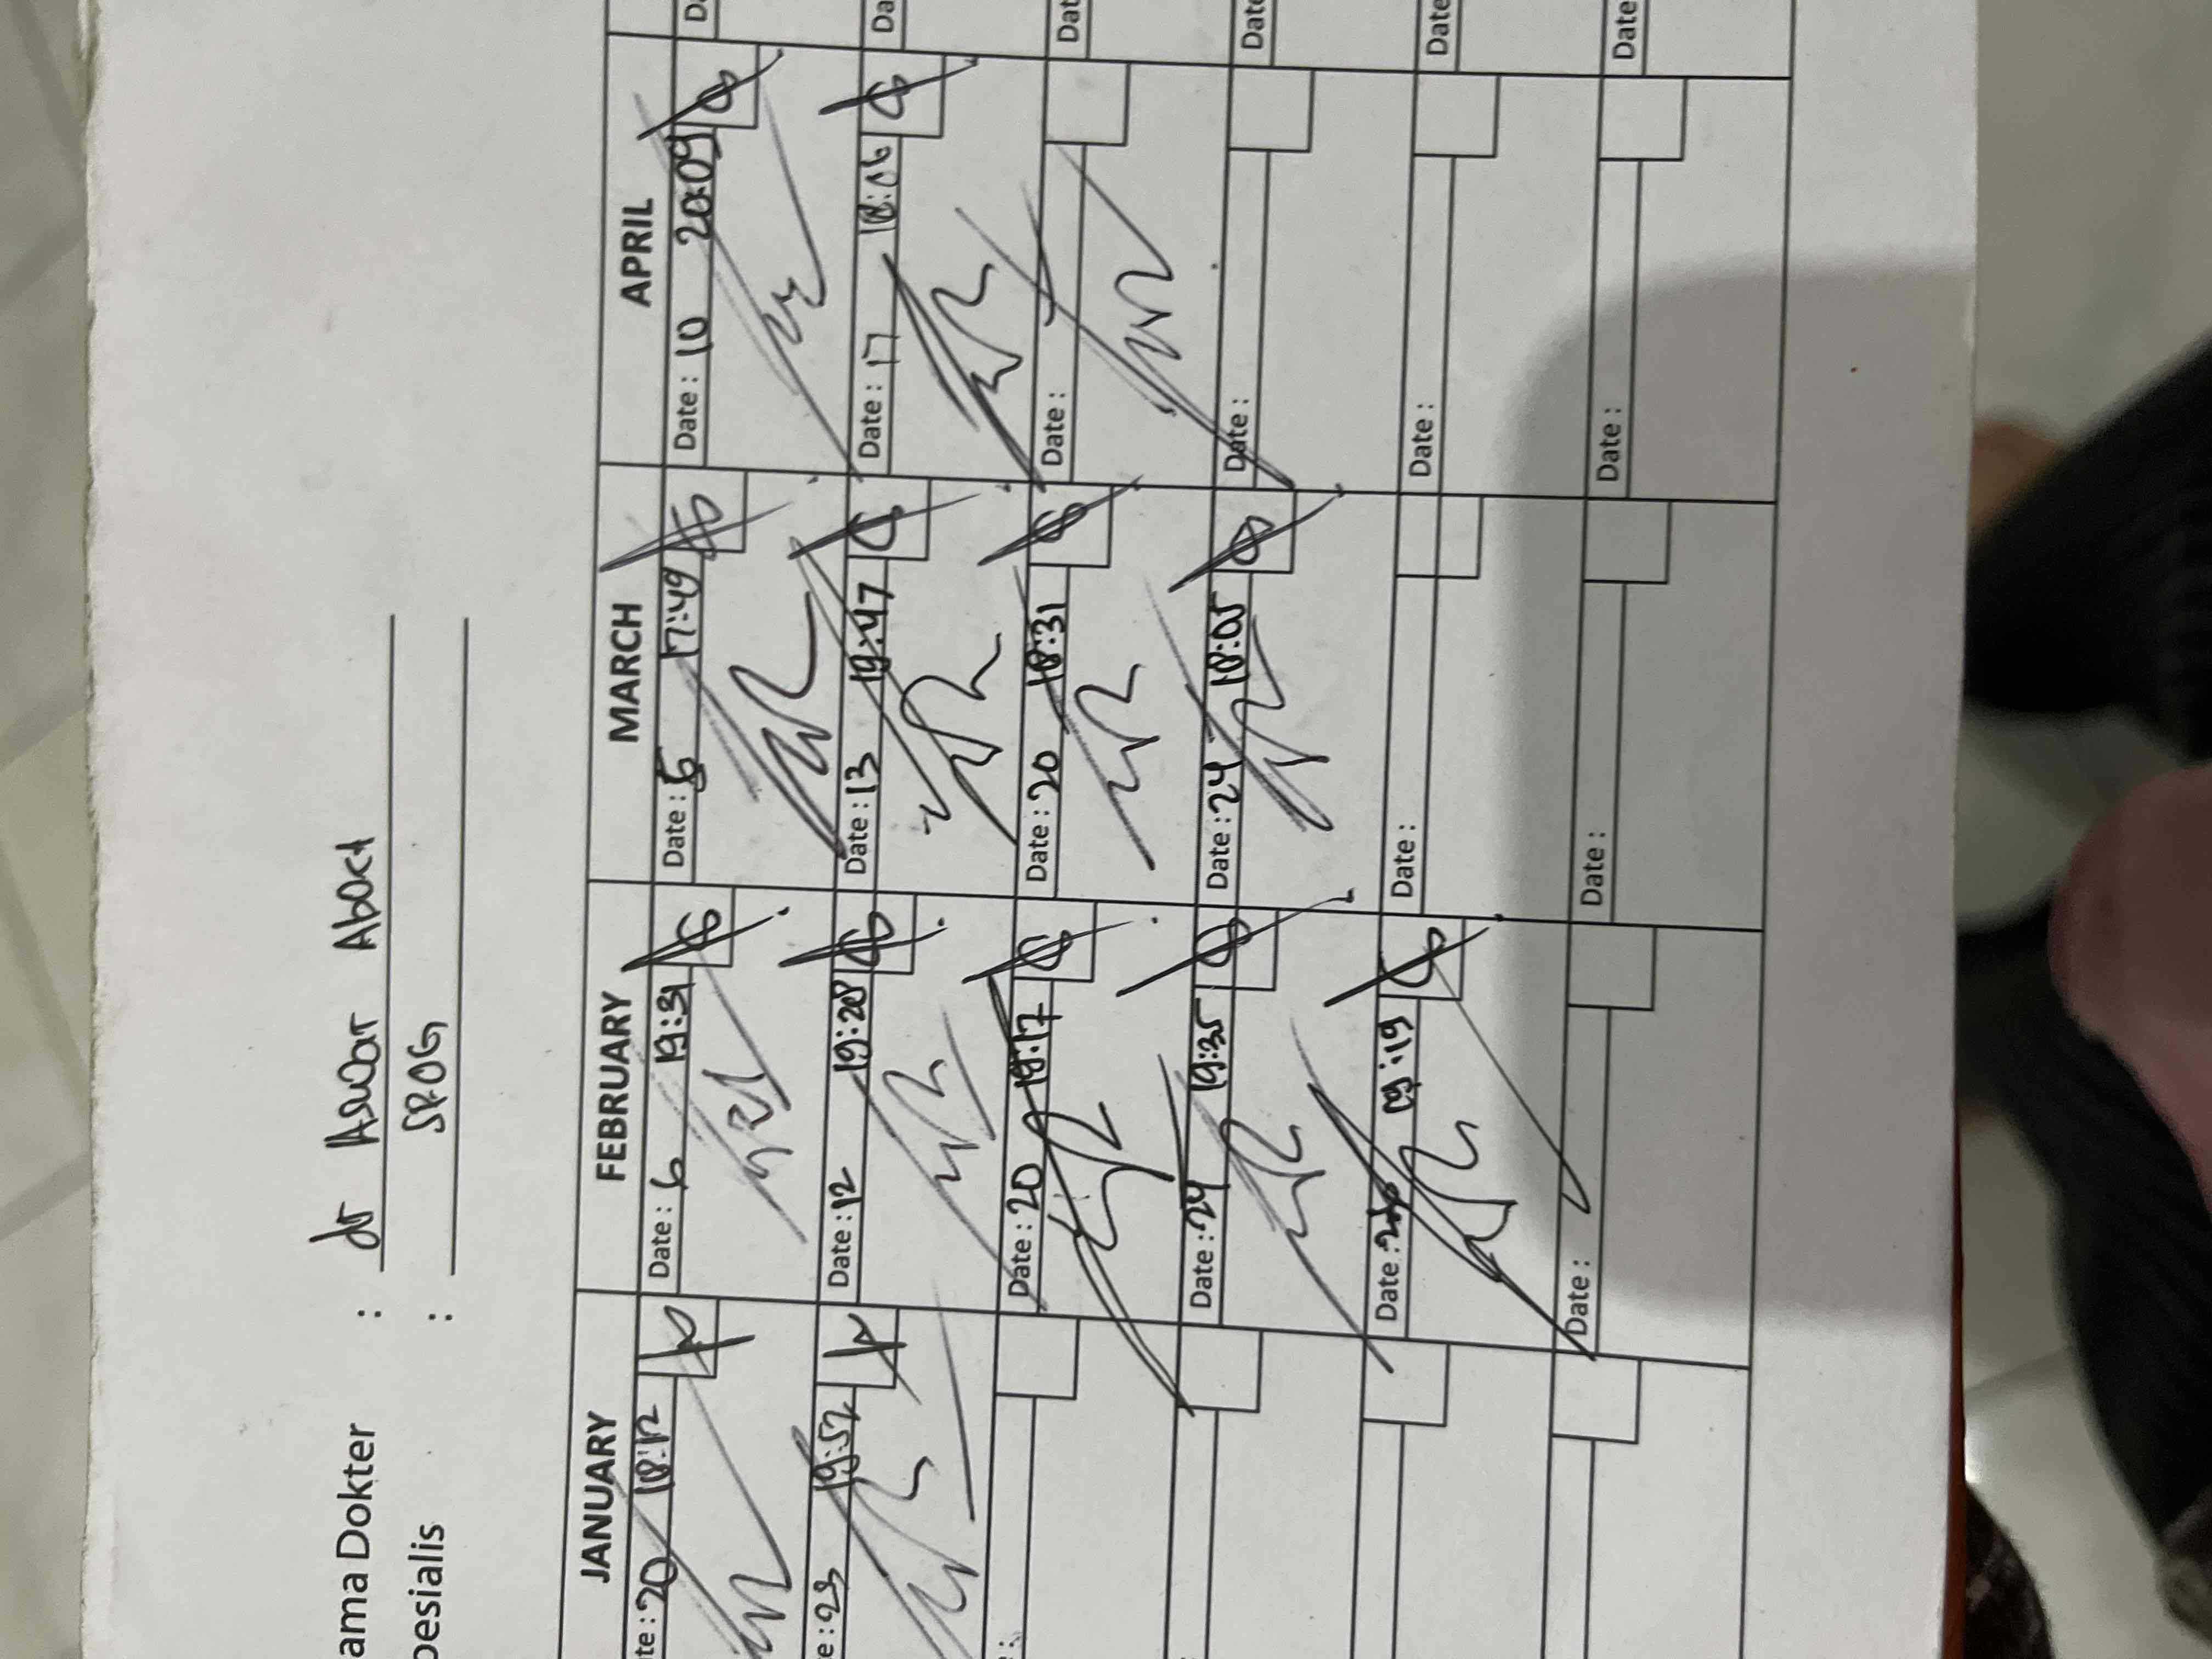 ama Dokter : dr Aswar Aboet
pesialis : SPOG
JANUARY FEBRUARY MARCH APRIL
te : 20 18:12 Date : 6 19:31 Date : 5 17:49 Date : 10 20:09
e : 23 19:57 Date : 12 19:28 Date : 13 19:47 Date : 17 18:06
: Date : 20 18:17 Date : 20 18:31 Date : Dat
Date : 24 19:35 Date : 24 18:05 Date : Date
Date : 19:19 Date : Date : Date
Date : Date : Date : Date